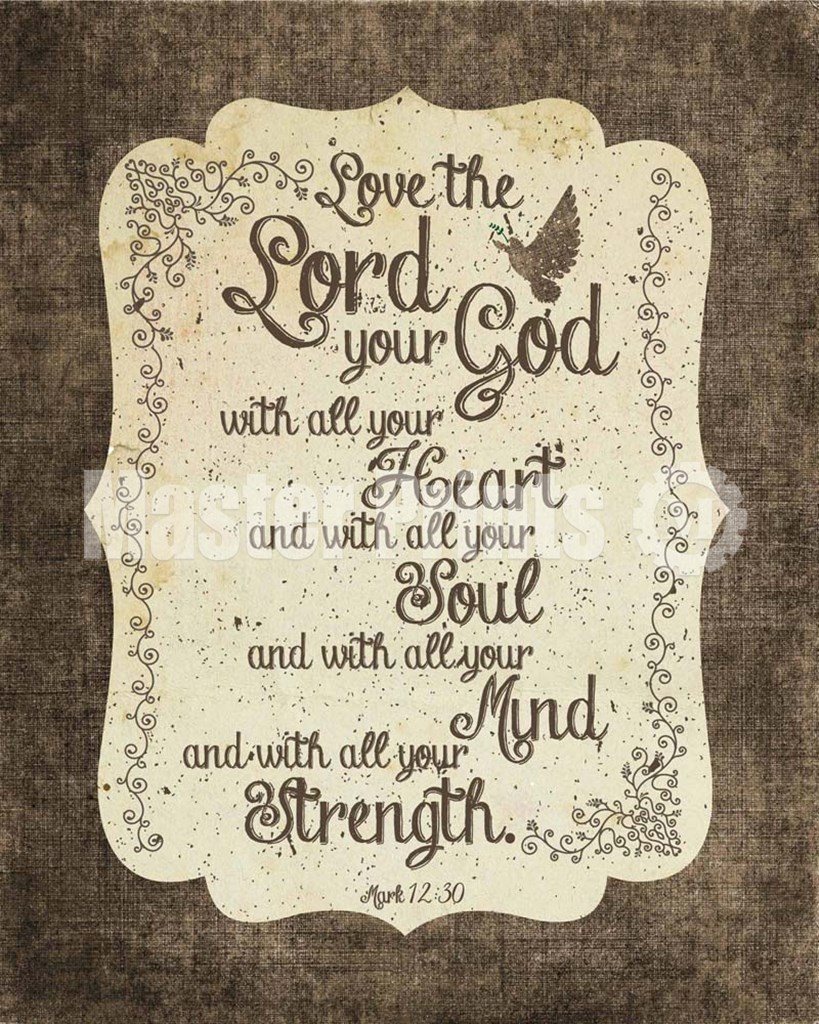 Love the
Lord
your God
with all your
Heart
and with all your
Soul
and with all your
Mind
and with all your
Strength.
Mark 12:30